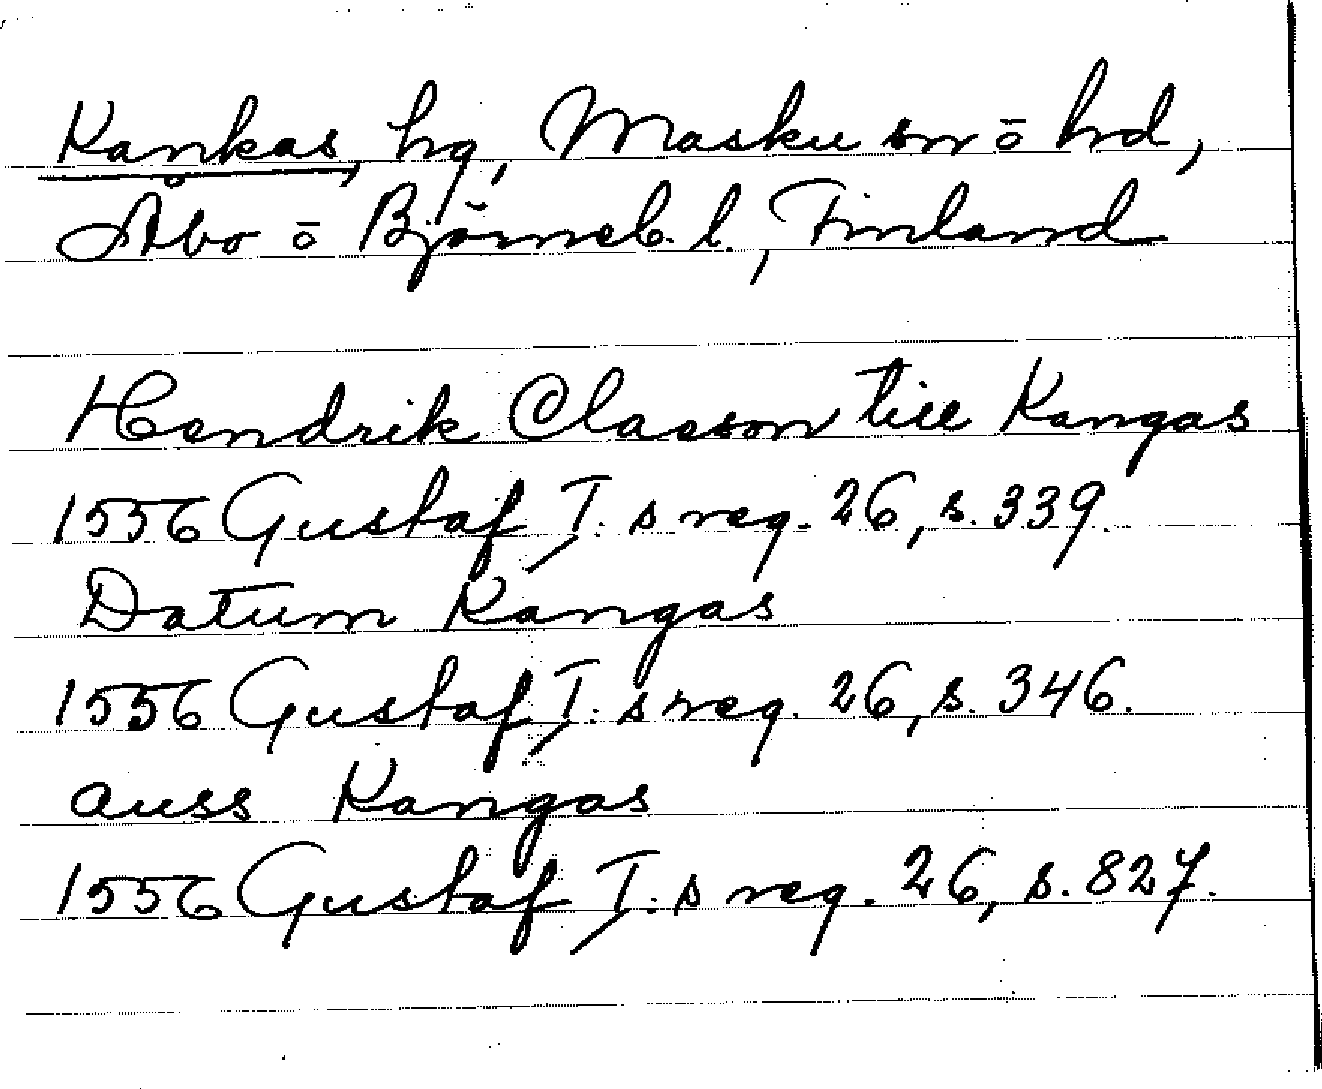 Kankas, hg, Masku sn ō hd,
Åbo ō Björneb. l., Finland
Hendrik Claeson till Kangas
1556 Gustaf I.s reg. 26, s. 339.
Datum Kangas
1556 Gustaf I.s reg. 26, s. 346.
auss Kangas
1556 Gustaf I.s reg. 26, s. 827.